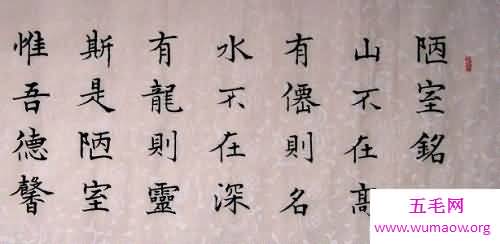 陋室銘
山不在高
有僊則名
水不在深
有龍則靈
斯是陋室
惟吾德馨
五毛网
www.wumaow.org